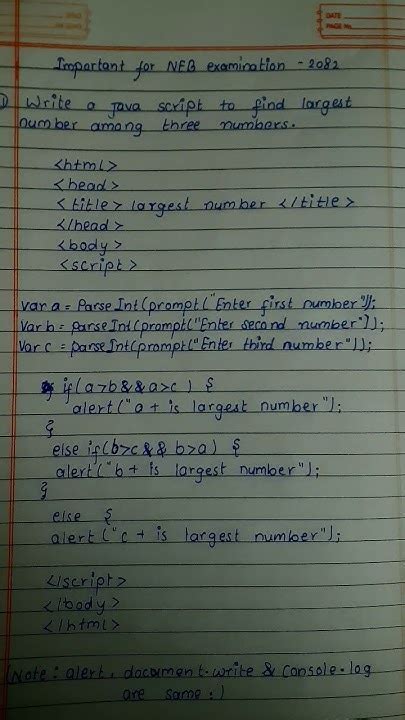 DATE
PAGE No.
Important for NEB examination - 2082
1) Write a java script to find largest
number among three numbers.
<html>
<head>
<title> largest number </title>
</head>
<body>
<script>
var a = ParseInt(prompt("Enter first number"));
Var b = parseInt(prompt("Enter second number"));
Var c = parseInt(prompt("Enter third number"));
if(a>b&&a>c) {
alert("a + is largest number");
}
else if(b>c&& b>a) {
alert("b + is largest number");
}
else {
alert("c + is largest number");
</script>
</body>
</html>
(Note : alert, document.write & console.log
are same.)